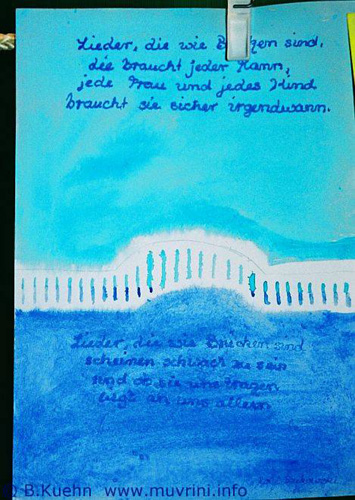 Lieder, die wie Brücken sind,
die braucht jeder Mann,
jede Frau und jedes Kind
braucht sie sicher irgendwann.
Lieder, die wie Brücken sind
scheinen schwach zu sein
und ob sie uns tragen
liegt an uns allein
© B.Kuehn www.muvrini.info